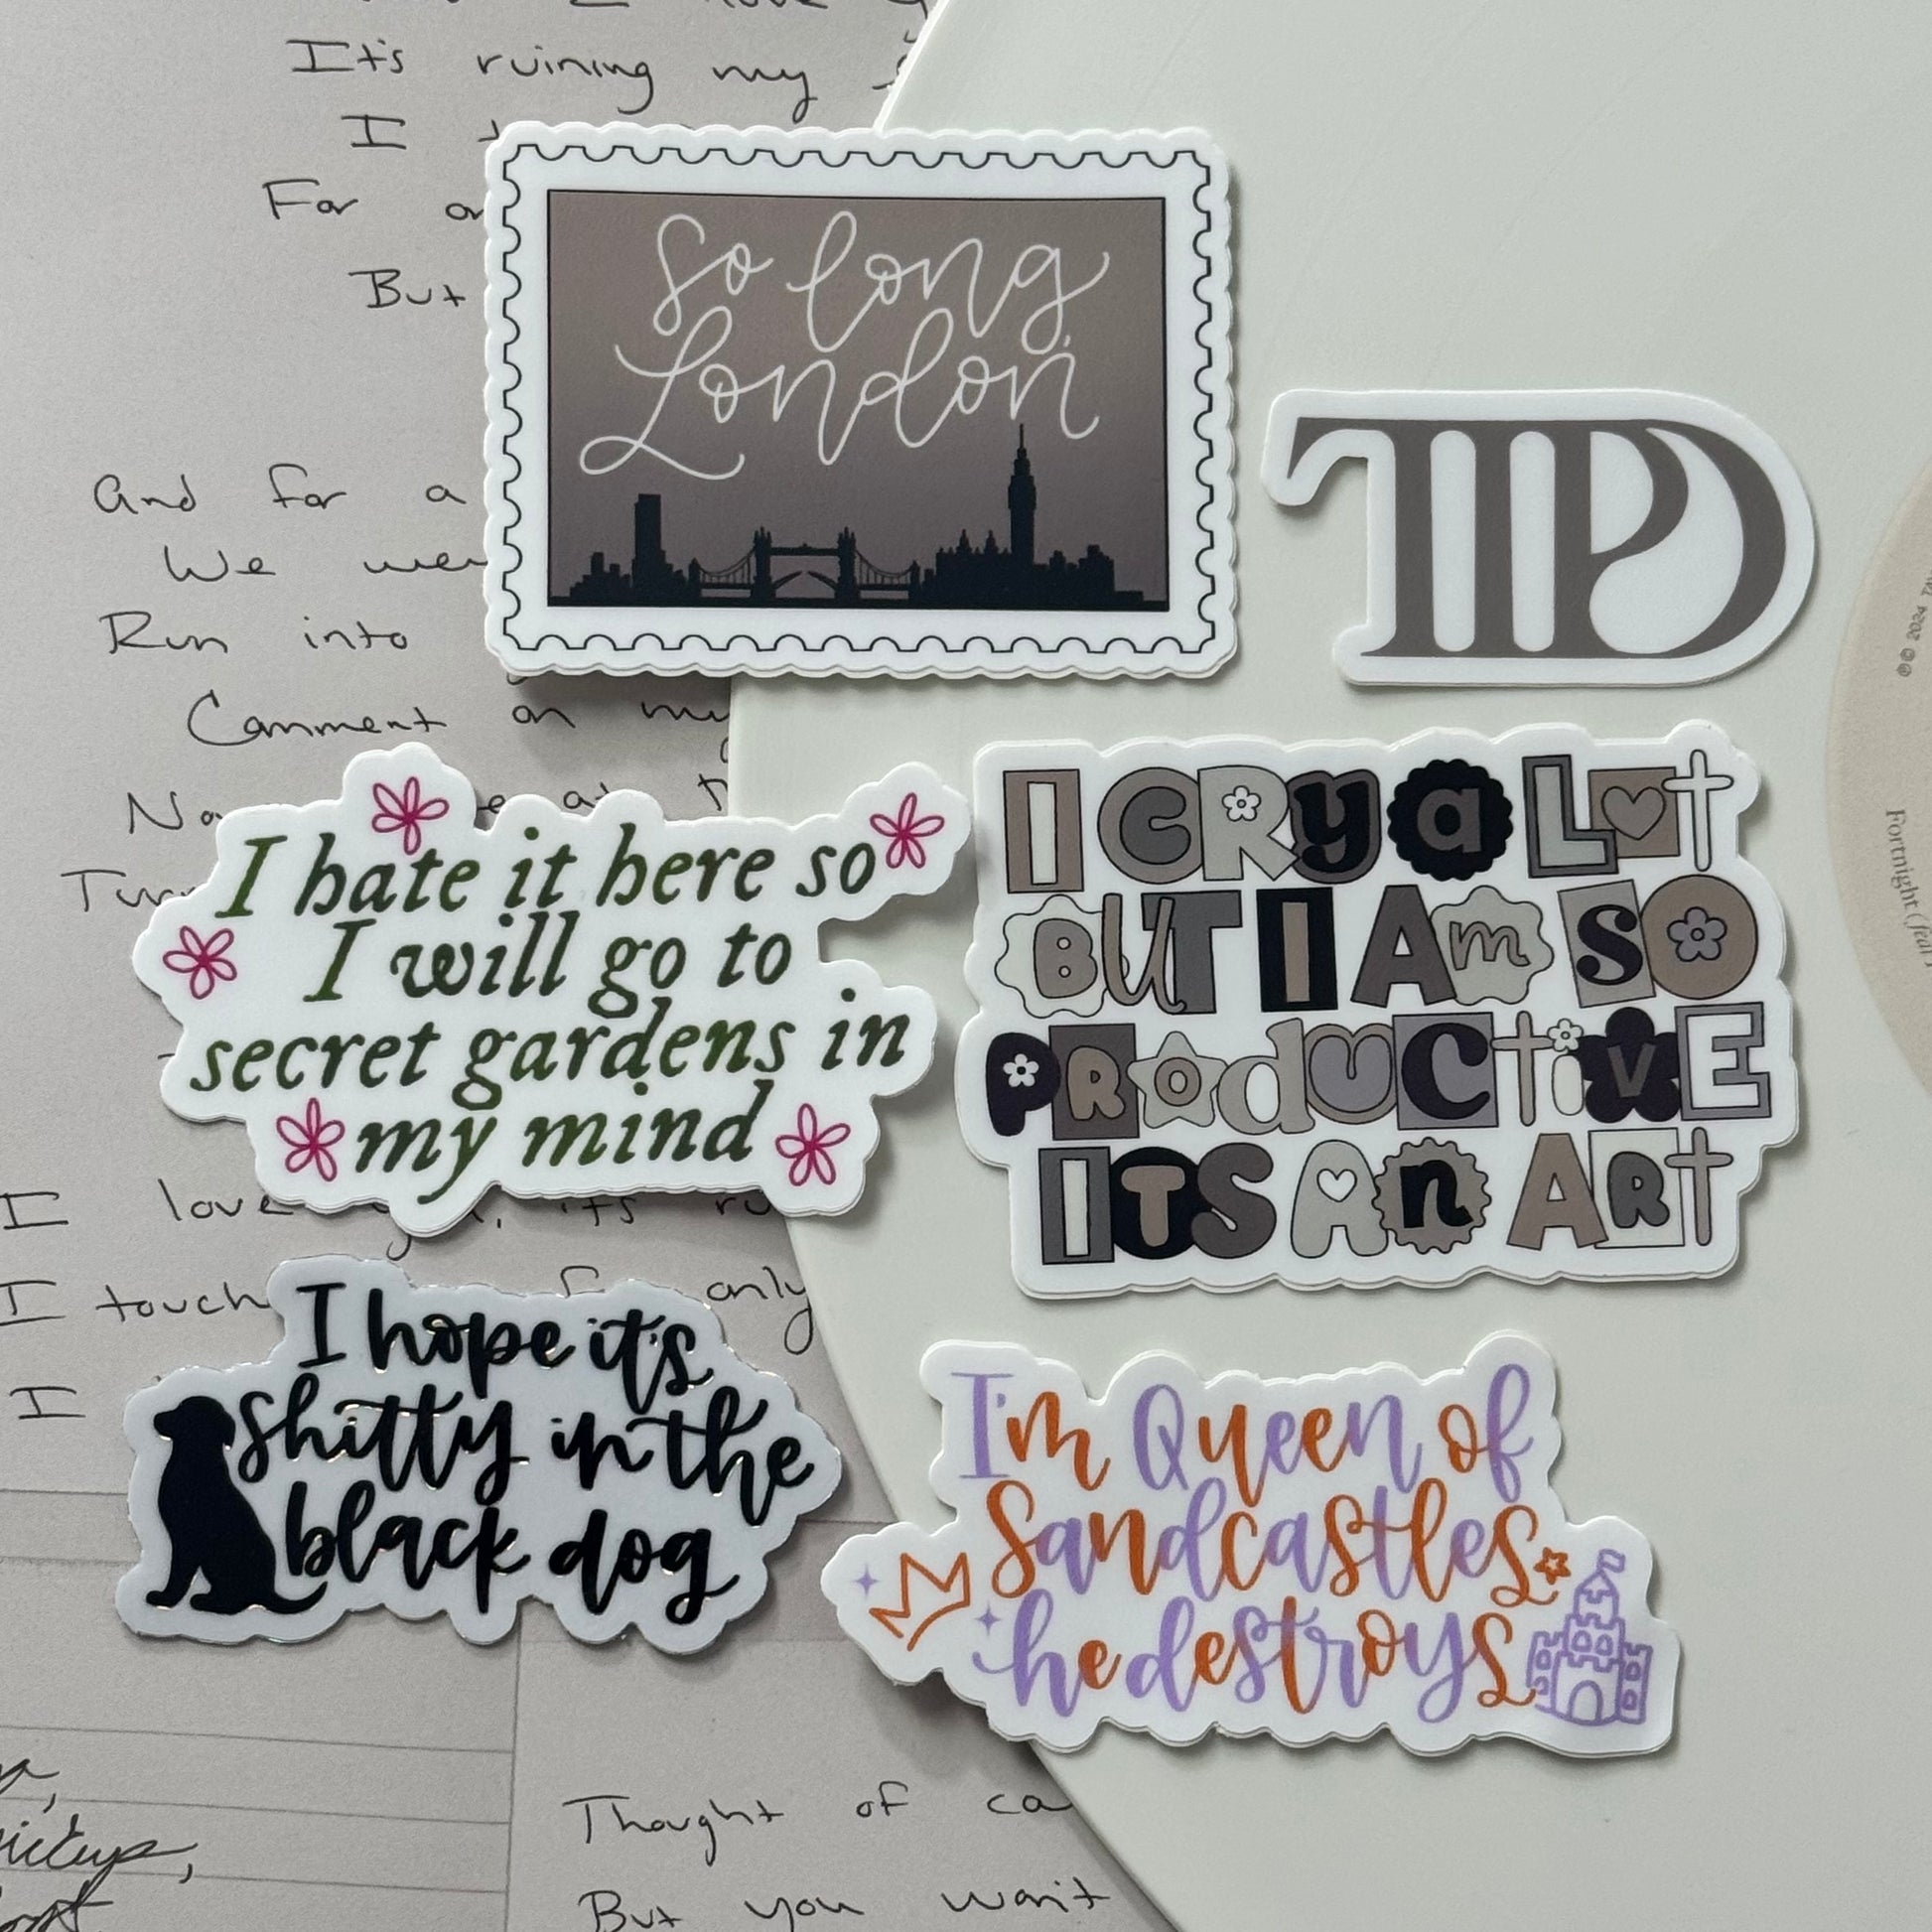 It's ruining my
I
For
But
so long
London
TTPD
And for a
We
Run into
Comment on my
I hate it here so
I will go to
secret gardens in
my mind
I CRy a Lot
BUT I Am SO
PRODUCtivE
ITS An ARt
I love it's
I touch only
I
I hope it's
shitty in the
black dog
I'm Queen of
Sandcastles
he destroys
Thought of
But you won't
℗© 2024
Fortnight (feat